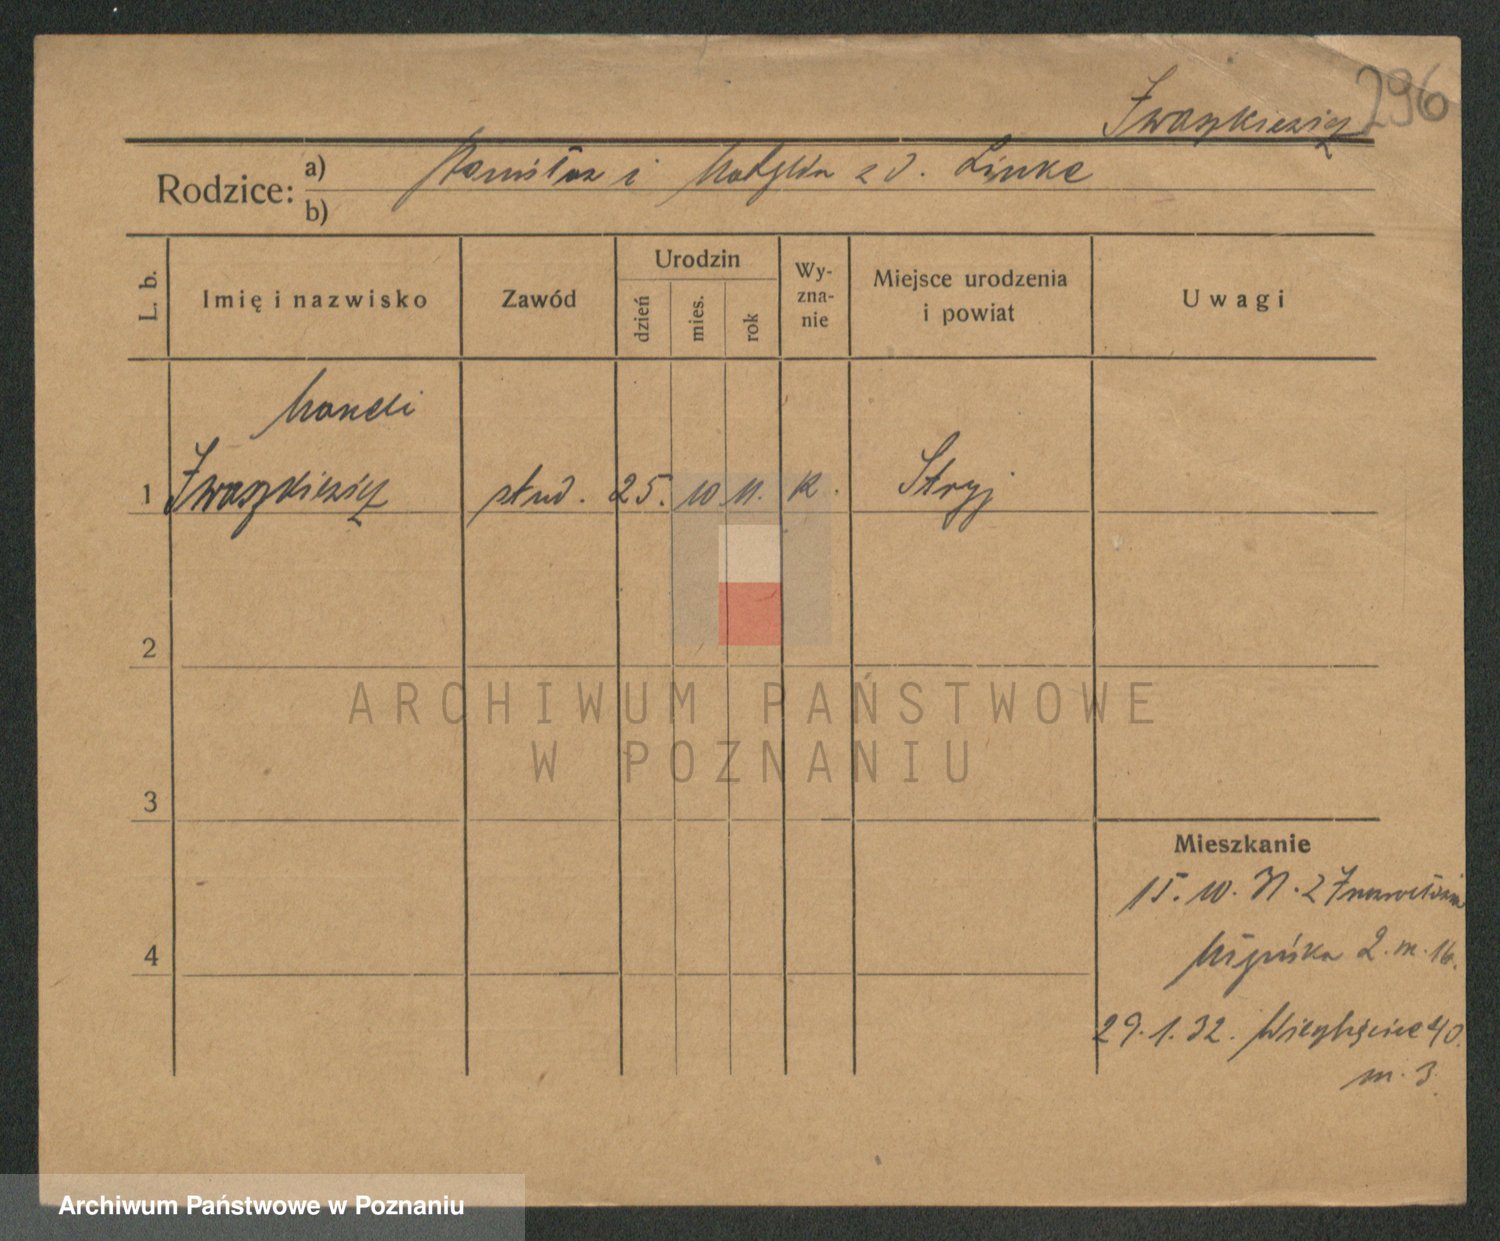 296
Iwaszkiewicz
Rodzice: a) Stanisław i Matylda z d. Linke
b)
L. b.
Imię i nazwisko
Zawód
Urodzin
dzień
mies.
rok
Wy-
zna-
nie
Miejsce urodzenia
i powiat
Uwagi
1 Iwaszkiewicz stud. 25. 10 11. k. Stryj
2
3
4
Mieszkanie
15. 10. 31. z
2. m. 16.
29. 1. 32. 40.
m. 3.
ARCHIWUM PAŃSTWOWE
W POZNANIU
Archiwum Państwowe w Poznaniu